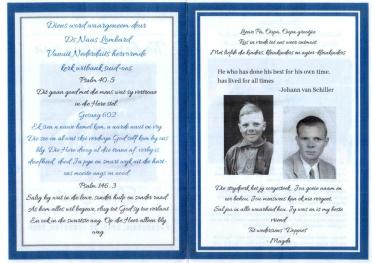 Diens word waargeneem deur
Ds Naas Lombard
Vanuit Nederduits hervormde
kerk witbank suid-oos
Psalm 40:5
Dit gaan goed met die mens wat sy vertroue
in die Here stel
Gesang 602
Ek sien a nuwe hemel kom, a aarde nuut en vry
Die see en al wat skei verdwyn God self kom by ons
bly. Die Here droog al die trane af verby is
doodleed, dood Ja pyn en smart wyk uit die hart
ons moeite angs en nood
Psalm 146:3
Salig hy wat in die lewe, sonder hulp en sonder raad
As hom alles wil begewe, vlug tot God sy toe verlaat
En ook in die swartste nag, Op die Heer alleen bly
wag
Liewe Pa, Oupa, Oupa-grootjie
Rus in vrede tot ons weer ontmoet
Met liefde die kinders, kleinkinders en agter-kleinkinders
He who has done his best for his own time,
has lived for all times
-Johann van Schiller
Die stryd het jy Jou goeie naam en
eer behou. Jou mens wees kan ek nie vergeet.
Sal jou in alle waarheid hou. Jy was en is my beste
vriend
Beminde vrou "Poppie"
- Magda